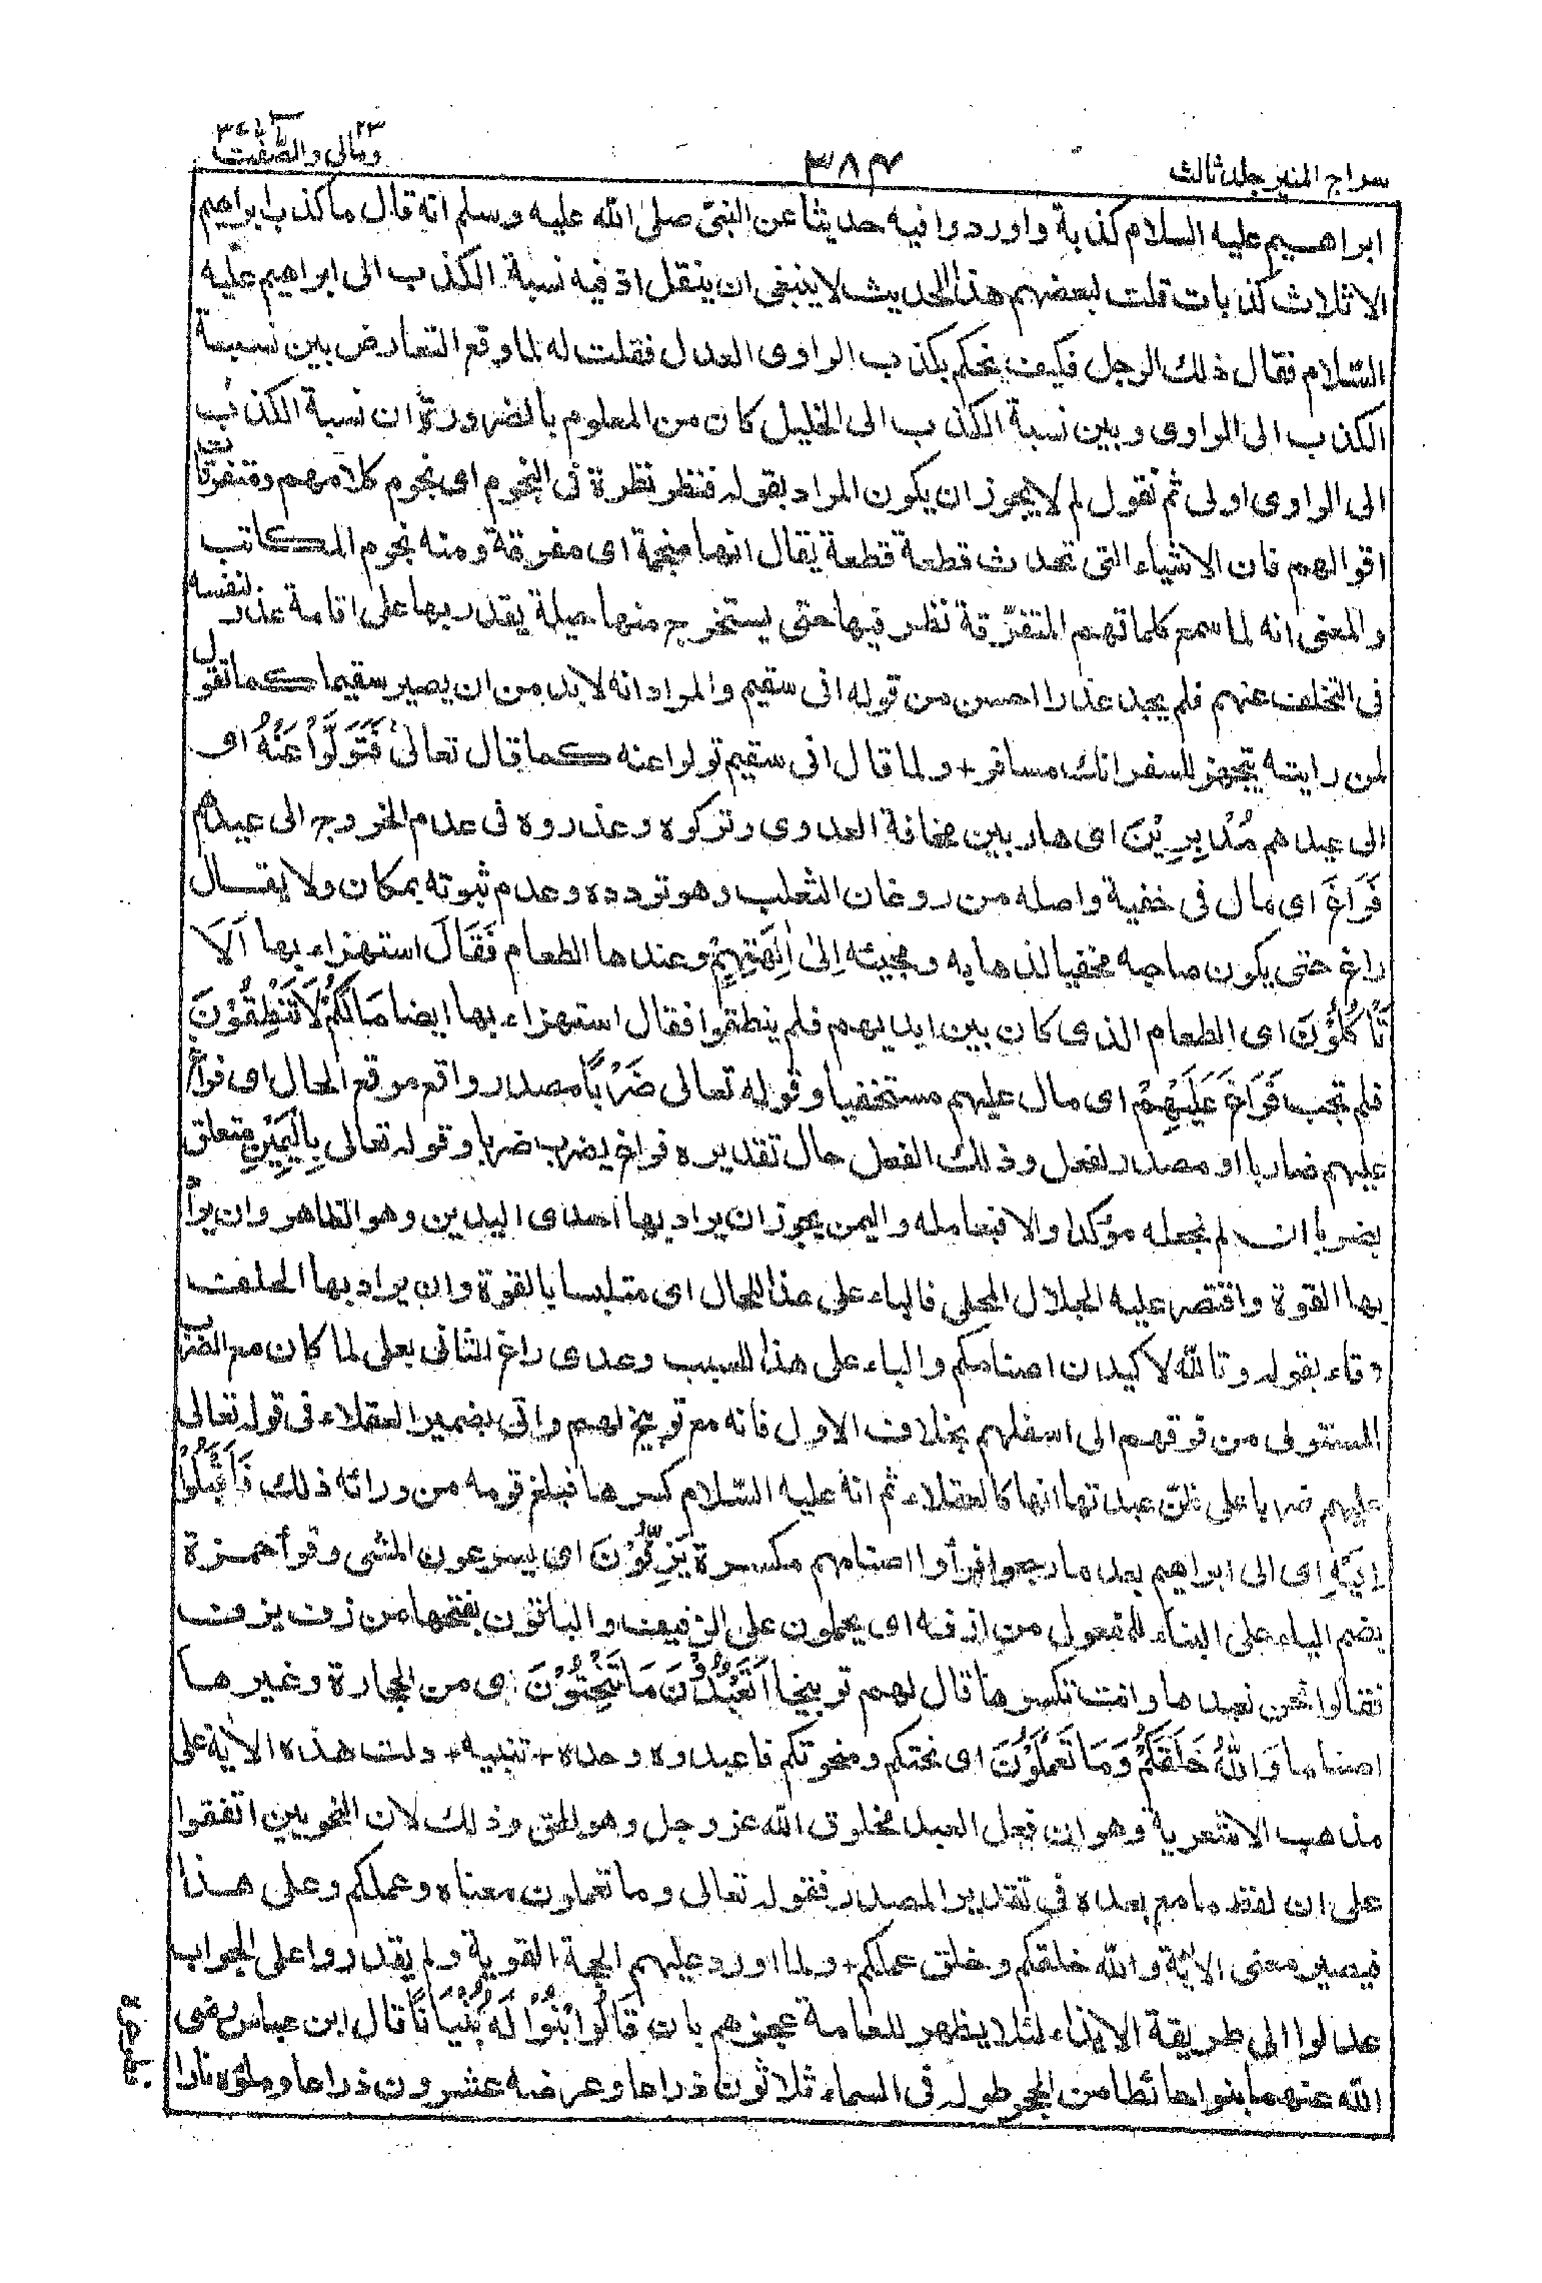 سراج المنير جلد ثالث
٣٨٤
ومالى ٢٣ والصّٰفّٰت
ابراهيم عليه السلام كذبة واوردوا فيه حديثا عن النبىّ صلى الله عليه وسلم انه قال ما كذب ابراهيم
الا ثلاث كذبات قلت لبعضهم هذا الحديث لا ينبغى ان ينقل اذ فيه نسبة الكذب الى ابراهيم عليه
السّلام فقال ذلك الرجل فكيف يحكم بكذب الراوى العدل فقلت له لما وقع التعارض بين نسبة
الكذب الى الراوى وبين نسبة الكذب الى الخليل كان من المعلوم بالضرورة ان نسبة الكذب
الى الراوى اولى ثم نقول لم لا يجوز ان يكون المراد بقوله فنظر نظرة فى النجوم اى نجوم كلامهم ومتفرقات
اقوالهم فان الاشياء التى تحدث قطعة قطعة يقال انها منجمة اى مفرقة ومنه نجوم المكاتب
والمعنى انه لما سمع كلماتهم المتفرّقة نظر فيها حتى يستخرج منها حيلة يقدر بها على اقامة عذر لنفسه
فى التخلف عنهم فلم يجد عذرا احسن من قوله انى سقيم والمراد انه لا بد من ان يصير سقيما كما تقول
لمن رايته يتجهز للسفر انك مسافر + ولما قال انى سقيم تولوا عنه كما قال تعالىٰ فَتَوَلَّوْا عَنْهُ اى
الى عيدهم مُدْبِرِيْنَ اى هاربين مخافة العدوى وتركوه وعذروه فى عدم الخروج الى عيدهم
فَرَاغَ اى مال فى خفية واصله من روغان الثعلب وهو تردده وعدم ثبوته بمكان ولا يقال
راغ حتى يكون صاحبه مخفيا لذهابه ومجيئه اِلىٰ اٰلِهَتِهِمْ وعندها الطعام فَقَالَ استهزاء بها اَلَا
تَأْكُلُوْنَ اى الطعام الذى كان بين ايديهم فلم ينطقوا فقال استهزاء بها ايضا مَا لَكُمْ لَا تَنْطِقُوْنَ
فلم تجب فَرَاغَ عَلَيْهِمْ اى مال عليهم مستخفيا وقوله تعالى ضَرْبًا مصدر واقع موقع الحال اى فراغ
عليهم ضاربا او مصدر لفعل وذلك الفعل حال تقديره فراغ يضرب ضربا وقوله تعالى بِالْيَمِيْنِ متعلق
بضربا ان لم نجعله مؤكدا والا فبعامله واليمن يجوز ان يراد بها احدى اليدين وهو الظاهر وان يراد
بها القوة واقتصر عليه الجلال المحلى فالباء على هذا للحال اى متلبسا بالقوة وان يراد بها الحلف
وفاء بقوله وتالله لاكيدن اصنامكم والباء على هذا للسبب وعدى راغ الثانى بعلى لما كان مع الضرب
المستولى من فوقهم الى اسفلهم بخلاف الاول فانه مع توبيخ لهم واتى بضمير العقلاء فى قوله تعالى
عليهم ضربا على ظنّ عبدتها انها كالعقلاء ثم انه عليه السّلام كسرها فبلغ قومه من ورائه ذلك فَاَقْبَلُوْا
اِلَيْهِ اى الى ابراهيم بعد ما رجعوا فرأوا اصنامهم مكسرة يَزِفُّوْنَ اى يسرعون المشى وقرأ حمزة
بضم الياء على البناء للمفعول من ازفه اى يحملون على الزفيف والباقون بفتحها من زف يزف
فقالوا نحن نعبدها وانت تكسرها قال لهم توبيخا اَتَعْبُدُوْنَ مَا تَنْحِتُوْنَ اى من الحجارة وغيرها
اصناما وَاللّٰهُ خَلَقَكُمْ وَمَا تَعْمَلُوْنَ اى نحتكم ومنحوتكم فاعبدوه وحده + تنبيه + دلت هذه الاٰية على
مذهب الاشعرية وهو ان فعل العبد مخلوق الله عز وجل وهو الحق وذلك لان النحويين اتفقوا
على ان لفظ ما مع بعده فى تقدير المصدر فقوله تعالى وما تعملون معناه وعملكم وعلى هذا
فيصير معنى الاٰية والله خلقكم وخلق عملكم + ولما اورد عليهم الحجة القوية ولم يقدروا على الجواب
عدلوا الى طريقة الايذاء لئلا يظهر للعامة عجزهم بان قَالُوا ابْنُوْا لَهٗ بُنْيَانًا قال ابن عباس رضى
الله عنهما بنوا حائطا من الحجر طوله فى السماء ثلاثون ذراعا وعرضه عشرون ذراعا وملؤه نارا